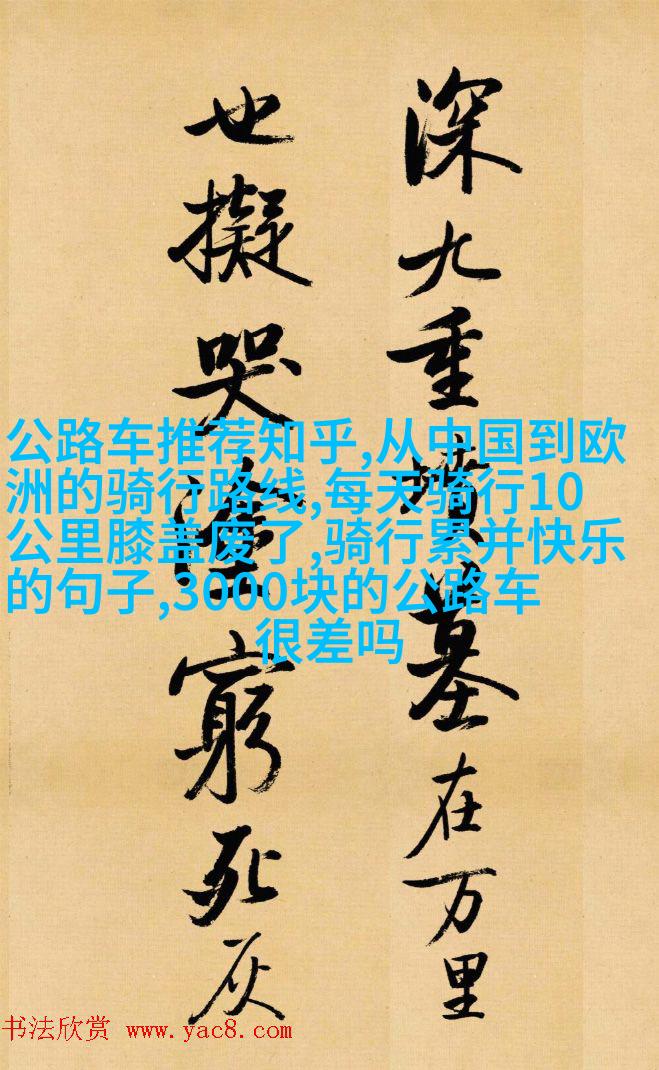 深九重墳墓在万里
也擬哭塗窮死灰
公路车推荐知乎,从中国到欧
洲的骑行路线,每天骑行10
公里膝盖废了,骑行累并快乐
的句子,3000块的公路车
很差吗
书法欣赏 www.yac8.com